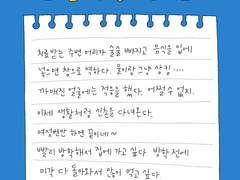 치료받는 주변 머리가 술술 빠지고 음식을 입에
넣으면 창으로 역하다. 물이랑 그냥 상킹 ····
까매진 얼굴에는 적응을 했다. 어쩔 수 없지.
이제 생활처럼 신촌을 다녀온다.
여섯번만 하면 끝이네~
빨리 방학해서 집에 가고 싶다. 방학 전에
미각 다 돌아와서 많이 먹고 싶다.